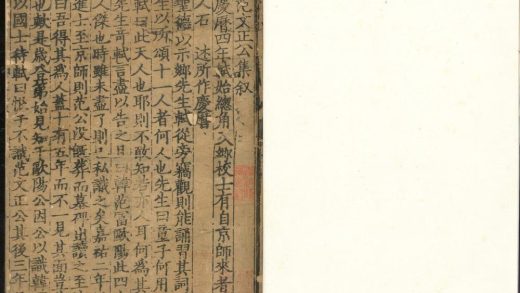 文正公集叙
慶曆四年軾始總角入鄉校士有自京師來者
人石 述所作慶曆
聖德以示鄉先生軾從旁竊觀則能誦習其詞
先生以所頌十一人者何人也先生曰童子何用
軾曰此天人也耶則不敢知若亦人耳何為其
先生奇軾言盡以告之且曰韓范富歐陽此四
人傑也時雖未盡了則已私識之矣嘉祐二年
進士至京師則范公沒既葬而墓碑出讀之至
曰吾得其為人蓋十有五年而不一見其面豈
也歟是歲登第始見知于歐陽公因公以識韓
以國士待軾曰恨子不識范文正公其後三年